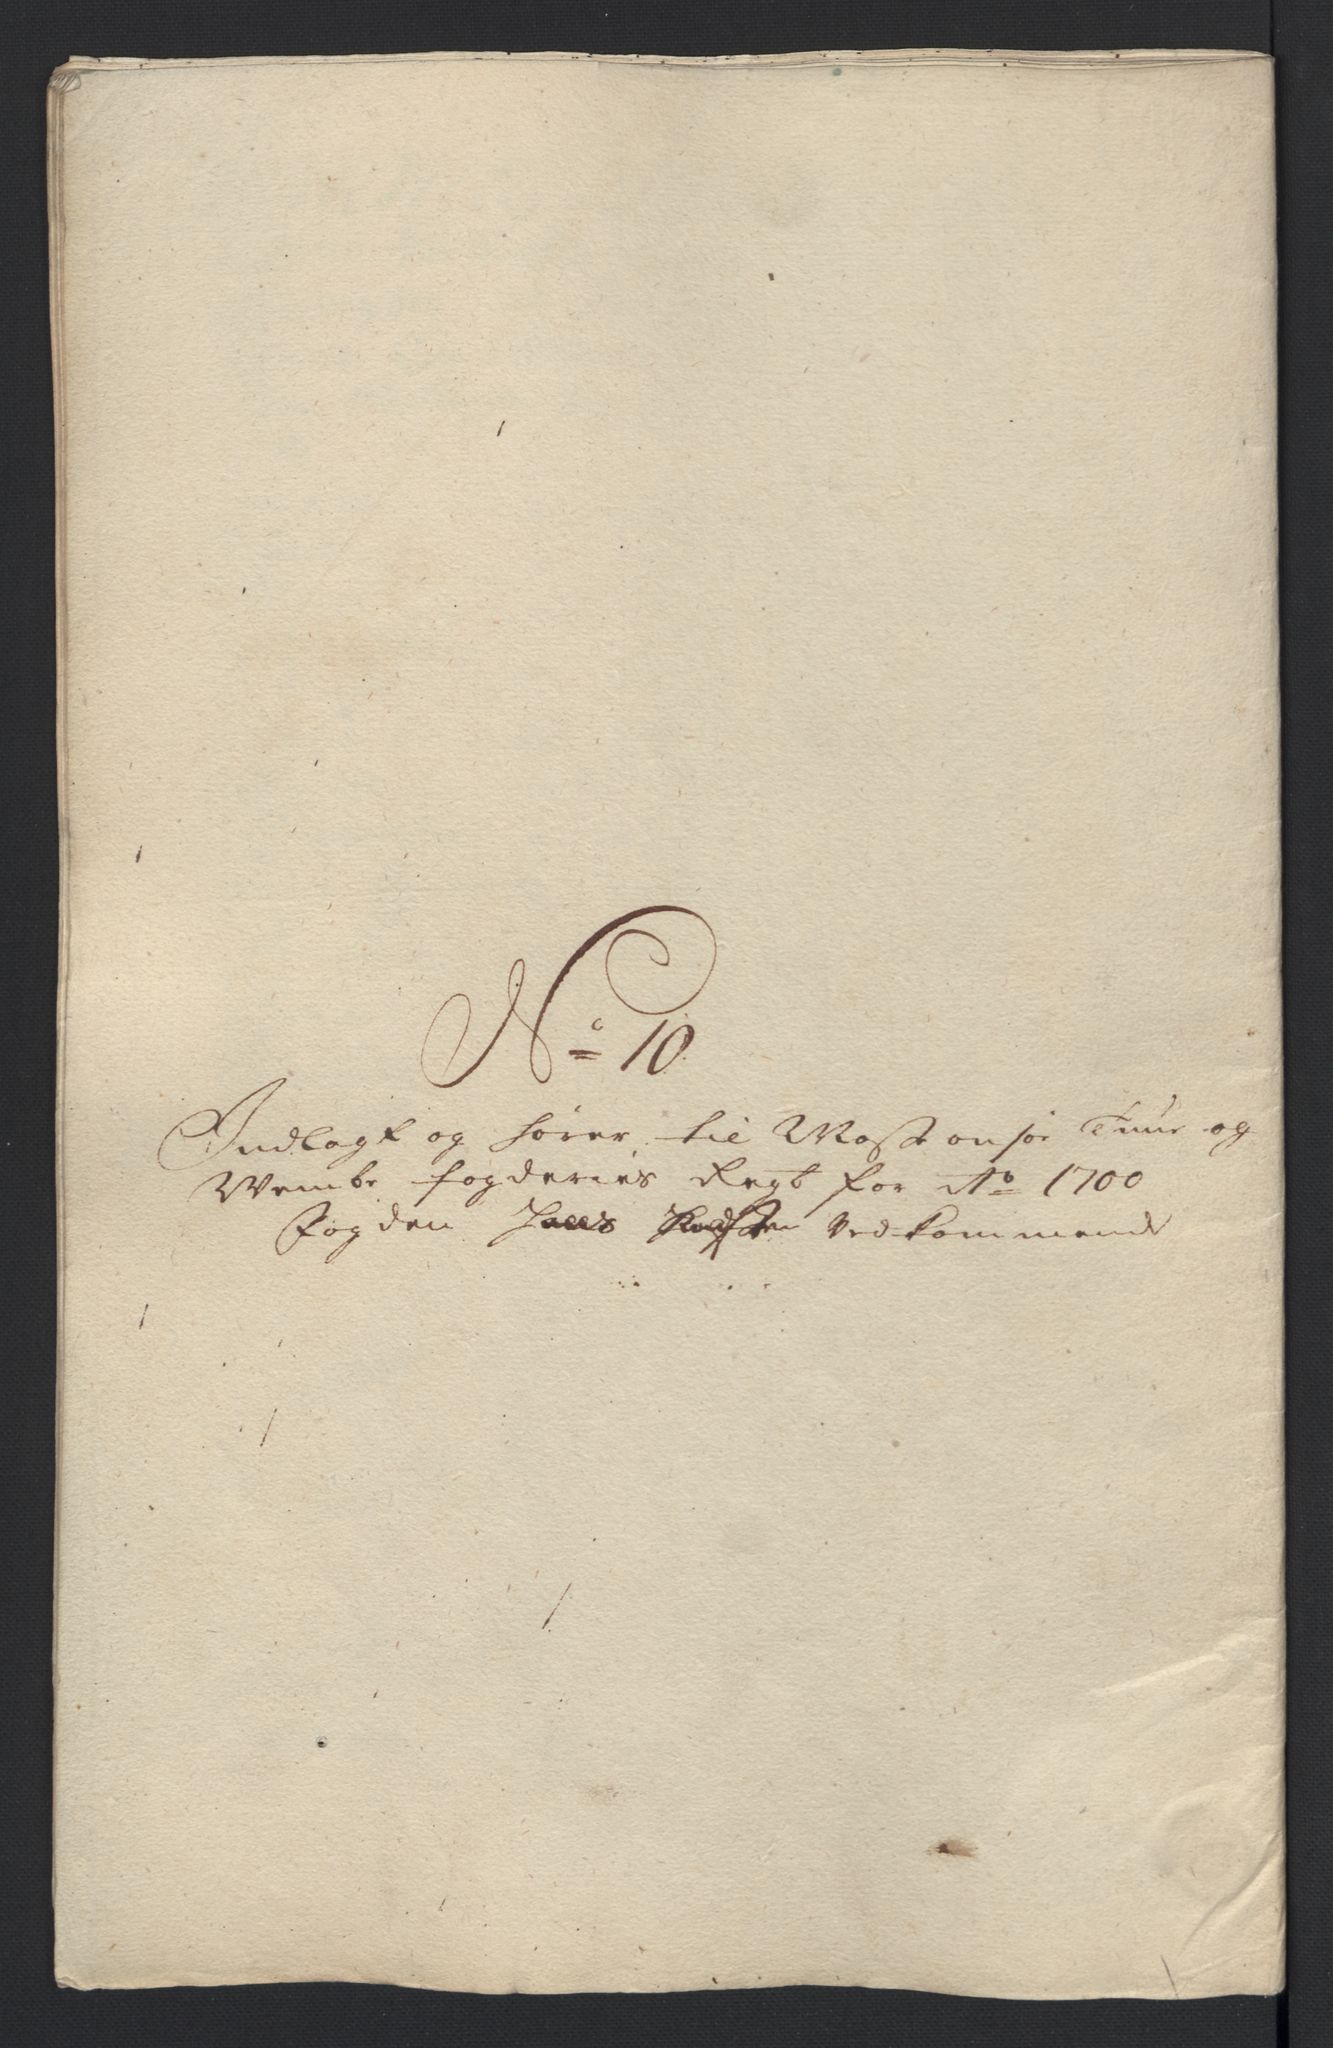 No 10
Indlagt og hører til Moss Onsøe Tune og
Wembe fogderies Regt for Ao 1700
Fogden Jens ved kommende